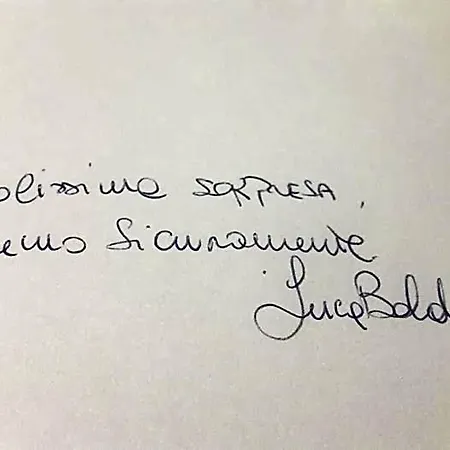 olissima SORPRESA,
emo Sicuramente
Luca Bald